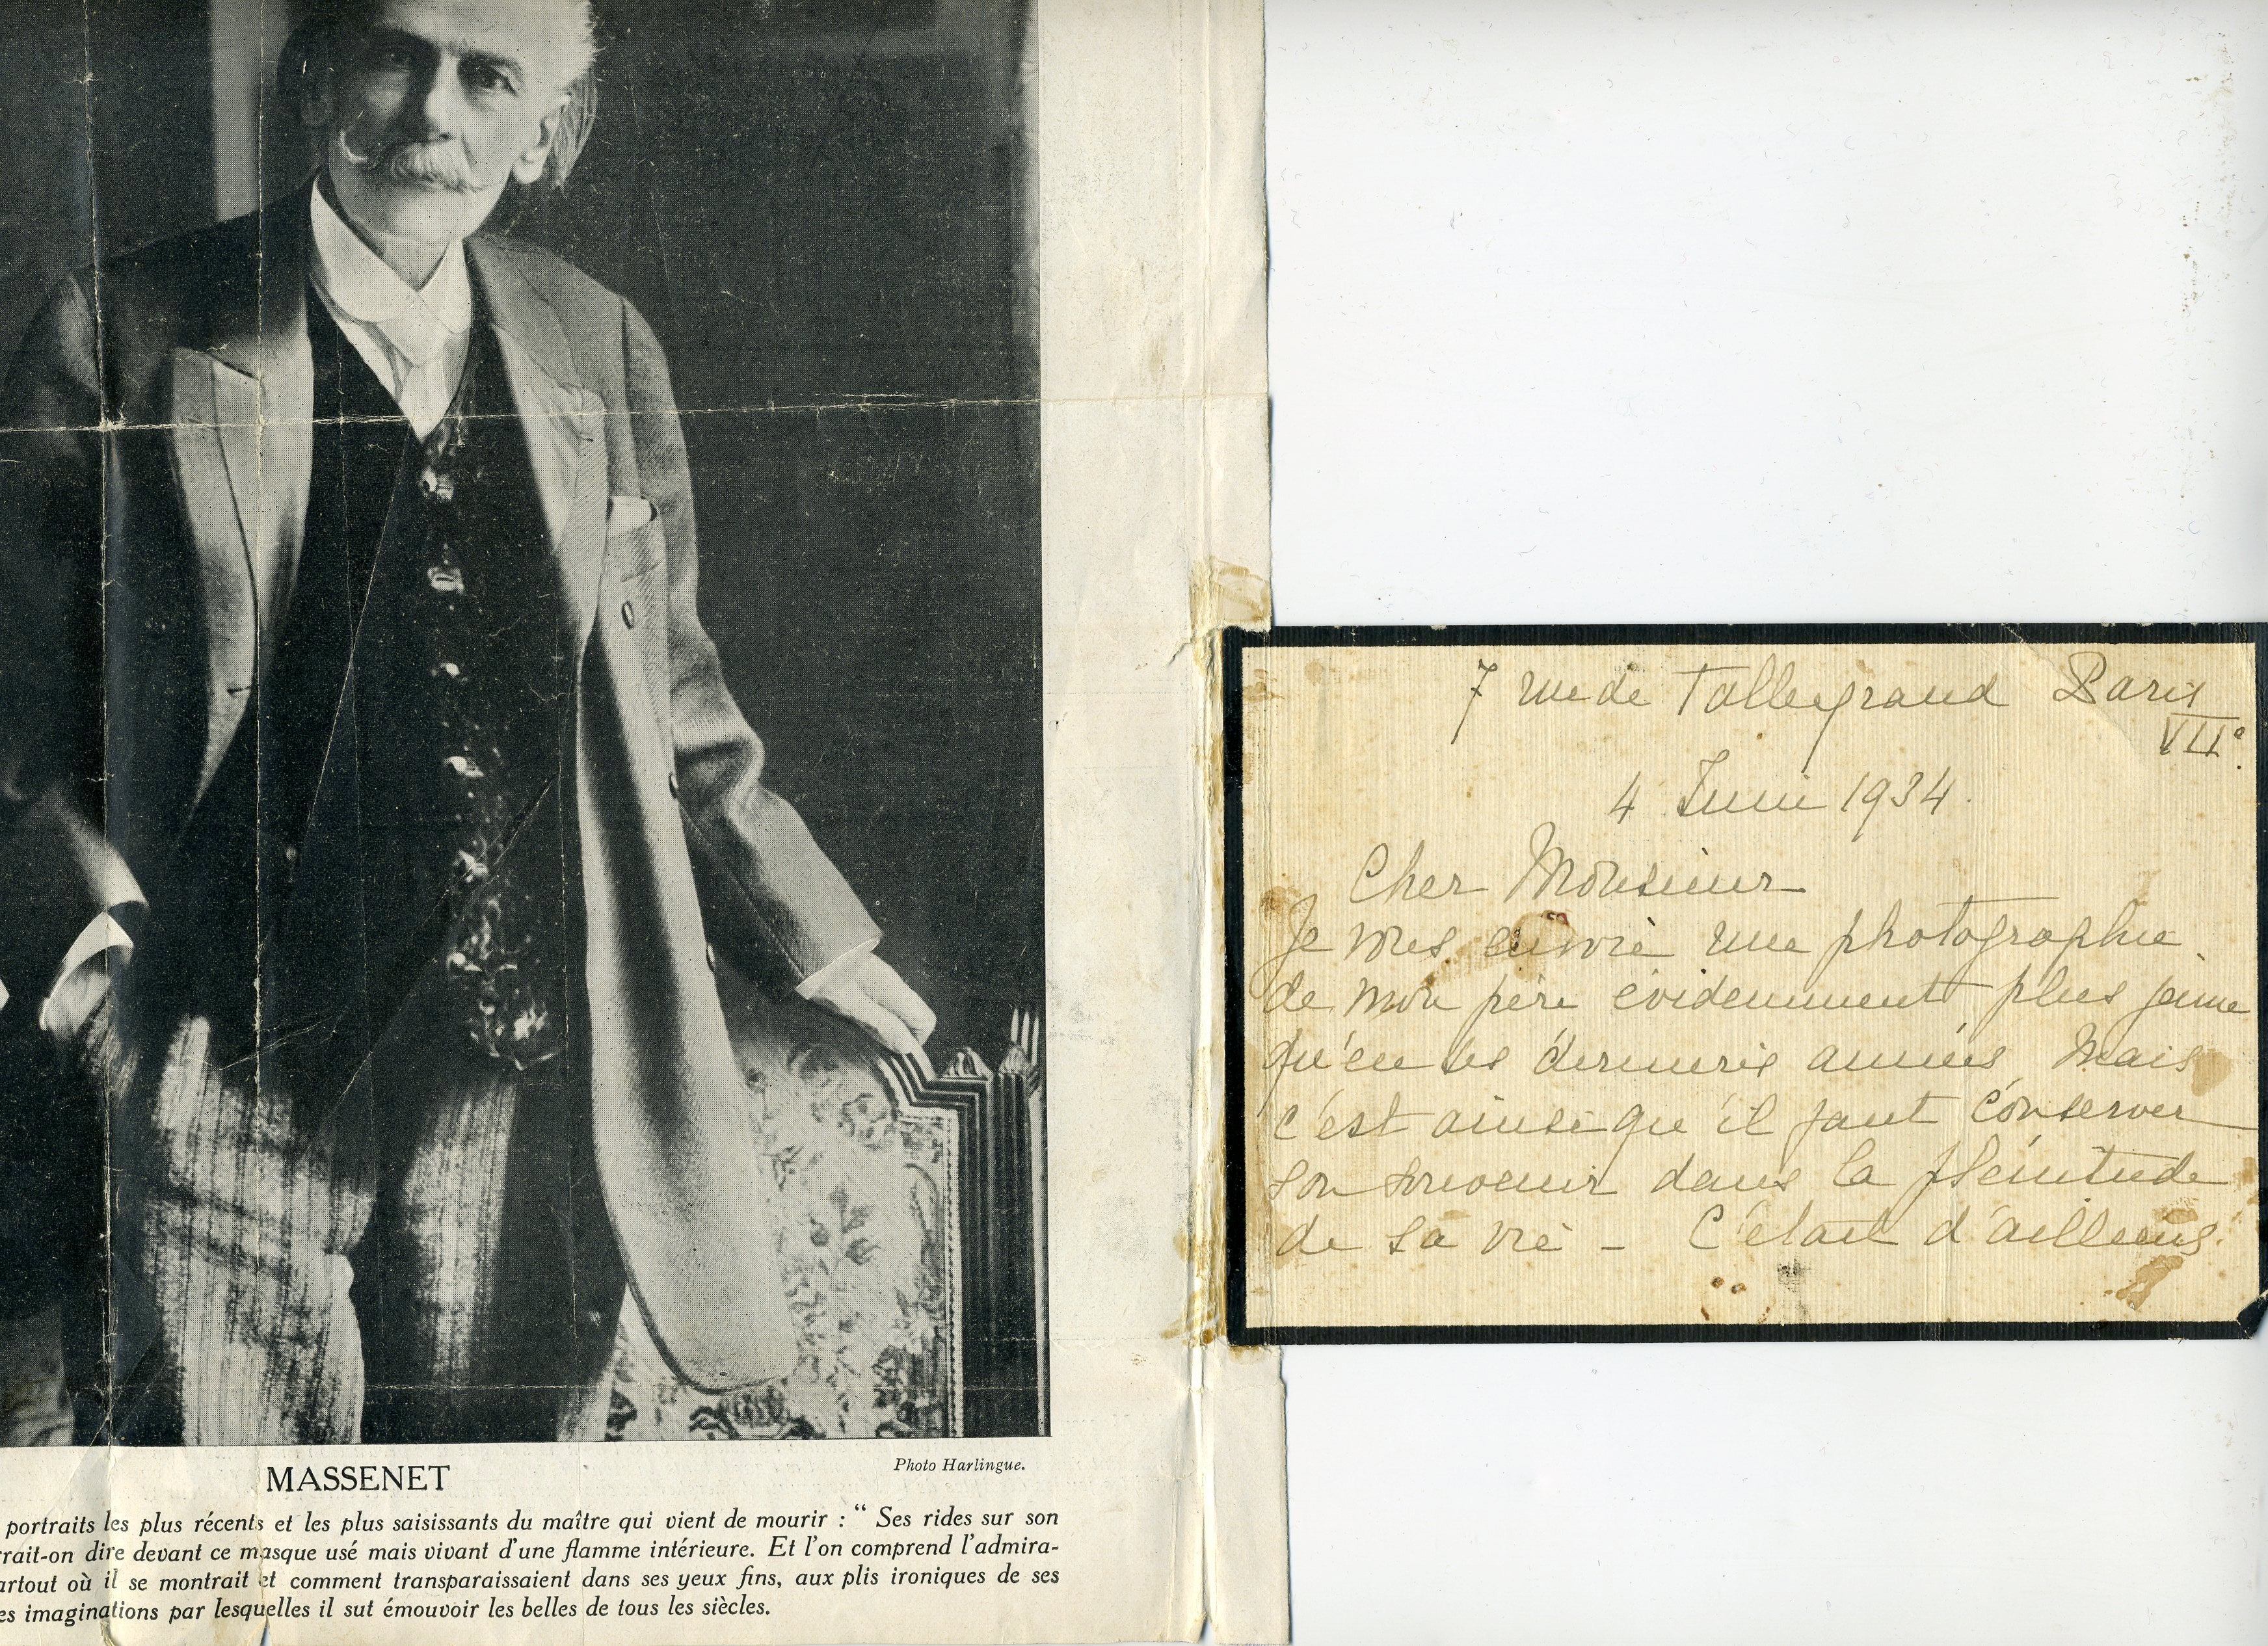 MASSENET
Photo Harlingue.
portraits les plus récents et les plus saisissants du maître qui vient de mourir : “ Ses rides sur son
rait-on dire devant ce masque usé mais vivant d'une flamme intérieure. Et l'on comprend l'admira-
artout où il se montrait et comment transparaissaient dans ses yeux fins, aux plis ironiques de ses
es imaginations par lesquelles il sut émouvoir les belles de tous les siècles.
7 rue de Talleyrand Paris
VIIe
4 Juin 1934.
Cher Monsieur
Je vous envoie une photographie
de mon père évidemment plus jeune
qu'en ses dernières années Mais
c'est ainsi qu'il faut conserver
son souvenir dans la plénitude
de sa vie – C'était d'ailleurs